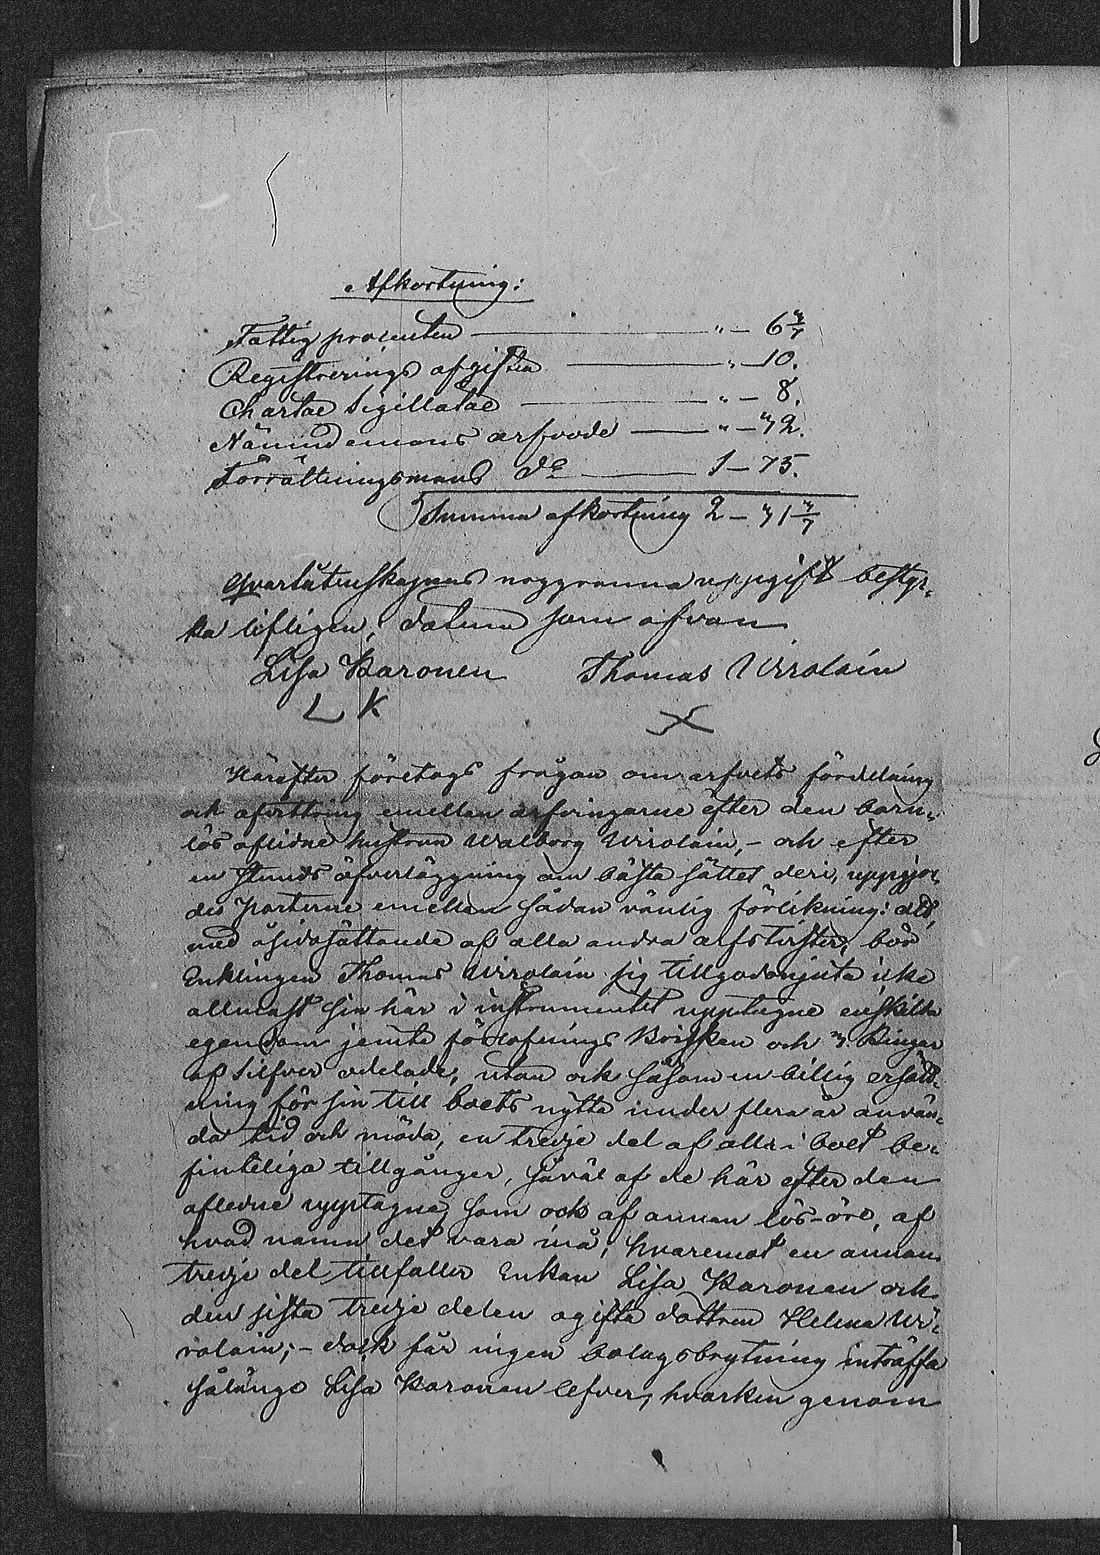 Afkortning:
Fattig procenten — " — 6 3/7
Registrerings afgiften — " — 10.
Chartae Sigillatae — " — 8.
Nämndemans arfvode — " — 32.
Förrättningsmans d:o — 1 — 75.
Summa afkortning 2 — 31 3/7
Qvarlåtenskapens noggranna uppgift bestyr-
ka lifligen, datum som ofvan
Lisa Karonen Thomas Wirolain
L K X
Härefter företogs frågan om arfvets fördelning
och afvittring emellan arfvingarne efter den barn-
lös aflidne hustrun Walborg Wirolain, - och efter
en stunds öfverläggning om bästa sättet deri, uppgjor-
des parterne emellan sådan vänlig förlikning: att,
med åsidosättande af alla andra arfstvister, bör
Enklingen Thomas Wirolain sig tillgodonjuta icke
allenast sin här i instrumentet upptagne enskilda
egendom jemte förlofnings Brisken och 3 Ringar
af Silfver odelade, utan ock såsom en billig ersätt-
ning för sin till boets nytta under flera år använ-
da tid och möda, en tredje del af alla i boet be-
finteliga tillgånger, såväl af de här efter den
aflidne upptagne, som ock af annan lös-öre, af
hvad namn det vara må; hvaremot en annan
tredje del tillfaller Enkan Lisa Karonen och
den sista tredje delen ogifta dottren Helena Wi-
rolain; - dock får ingen bolagsbrytning inträffa
sålänge Lisa Karonen lefver, hvarken genom